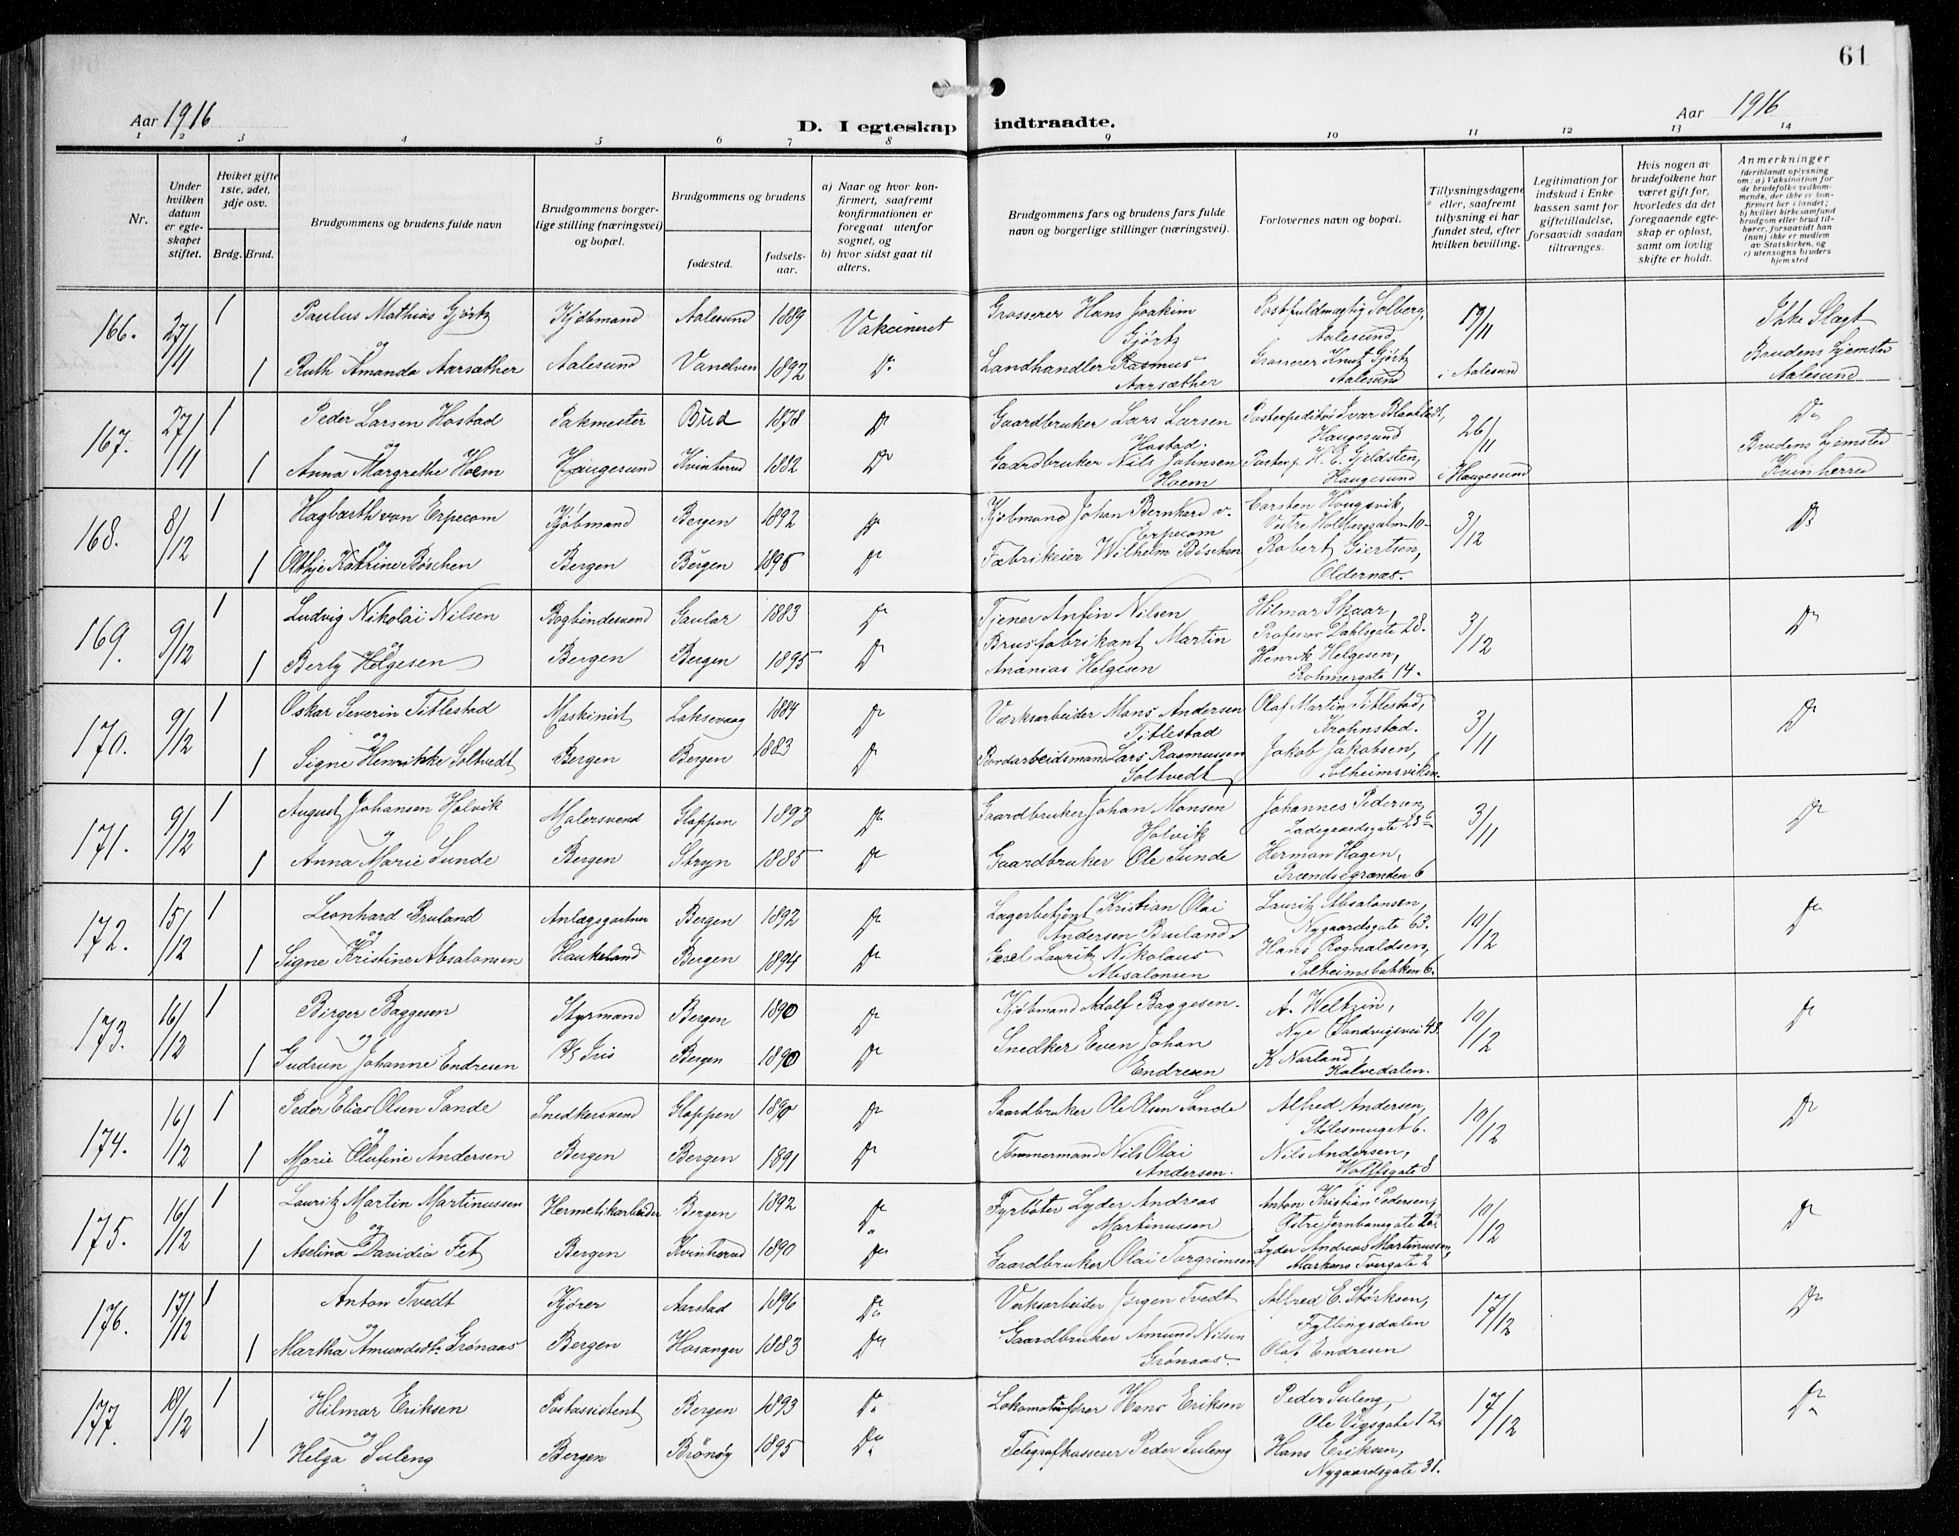 61
Aar 1916
D. I egteskap indtraadte.
Aar 1916
1 2 3 4 5 6 7 8 9 10 11 12 13 14
Nr.
Under hvilken datum er egteskapet stiftet.
Hvilket gifte 1ste, 2det, 3dje osv.
Brdg. Brud.
Brudgommens og brudens fulde navn
Brudgommens borgerlige stilling (næringsvei) og bopæl.
Brudgommens og brudens
fødested.
fødselsaar.
a) Naar og hvor konfirmert, saafremt konfirmationen er foregaat utenfor sognet, og
b) hvor sidst gaat til alters.
Brudgommens fars og brudens fars fulde navn og borgerlige stillinger (næringsvei).
Forlovernes navn og bopæl.
Tillysningsdagene eller, saafremt tillysning ei har fundet sted, efter hvilken bevilling.
Legitimation for indskud i Enkekassen samt for giftetilladelse, forsaavidt saadan tiltrænges.
Hvis nogen av brudefolkene har været gift før, hvorledes da det foregaaende egteskap er opløst, samt om lovlig skifte er holdt.
Anmerkninger (deriblandt oplysning om: a) Vaksination for de brudefolks vedkommende, der ikke er konfirmert her i landet; b) hvilket kirkesamfund brudgom eller brud tilhører, forsaavidt han (hun) ikke er medlem av Statskirken, og c) utensogns bruders hjemsted
166. 27/11 1 Paulus Mathias Gjørtz Kjøbmand Aalesund 1889 Vakcineret Grosserer Hans Joakim Gjørtz Postfuldmægtig Solberg, Aalesund 19/11 Ikke Slægt
og
1 Ruth Amanda Aarsæther Aalesund Vanelven 1892 Do Landhandler Rasmus Aarsæther Grosserer Knut Gjørtz Aalesund i Aalesund Brudens hjemsted Aalesund
167. 27/11 1 Peder Larsen Hostad Pakmester Bud 1878 Do Gaardbruker Lars Larsen Hostad. Postexpeditør Ivar Blakstad, Haugesund 26/11 Do
og
1 Anna Margrethe Hoem Haugesund Kvinherred 1882 Do Gaardbruker Nils Johnsen Hoem Postexp. H. C. Gjeldsten, Haugesund i Haugesund Brudens hjemsted Kvinherred
168. 8/12 1 Hagbarth von Erpecom Kjøbmand Bergen 1892 Do Kjøbmand Johan Bernhard v. Erpecom Carsten Hougsvik, Vestre Holbergsalm. 10 3/12 Do
og
1 Olthje Katrine Böschen Bergen Bergen 1895 Do Fabrikeier Wilhelm Böschen Robert Giertsen, Oldernæs.
169. 9/12 1 Ludvig Nikolai Nilsen Bogbindesvend Gaular 1883 Do Tjener Anfin Nilsen Hilmar Skaar, Professor Dahlsgate 28. 3/12 Do
og
1 Berly Helgesen Bergen Bergen 1895 Do Brusfabrikant Martin Ananias Helgesen Henrik Helgesen, Rohmergate 14.
170. 9/12 1 Oskar Severin Titlestad Maskinist Laksevaag 1884 Do Værksarbeider Mons Andersen Titlestad Olaf Martin Titlestad, Krohnstad. 3/11 Do
og
1 Signe Henrikke Soltvedt Bergen Bergen 1883 Do Bordarbeidsmand Lars Rasmussen Soltvedt Jakob Jakobsen, Solheimsviken
171. 9/12 1 August Johansen Holvik Malersvend Gloppen 1893 Do Gaardbruker Johan Monsen Holvik Johannes Pedersen, Ladegaardsgate 23 c 3/11 Do
og
1 Anna Marie Sunde Bergen Stryn 1885 Do Gaardbruker Ole Sunde Herman Hagen, Prændsegranden 6
172. 15/12 1 Leonhard Bruland Anlægsgartner Bergen 1892 Do Lagerbetjent Kristian Olai Andersen Bruland Lauritz Absalonsen, Nygaardsgate 63. 10/12 Do
og
1 Signe Kristine Absalonsen Haukeland Bergen 1894 Do Gesel Lauritz Nikolaus Absalonsen Hans Rognaldsen, Solheimsbakken 6.
173. 16/12 1 Birger Baggesen Styrmand Bergen 1890 Do Kjøbmand Adolf Baggesen. A. Weltzin, Nye Sandvigsvei 48. 10/12 Do
og
1 Gudrun Johanne Endresen D/S Iris Bergen 1890 Do Snedker Even Johan Endresen K Narland, Kalvedalen.
174. 16/12 1 Peder Elias Olsen Sande Snedkersvend Gloppen 1890 Do Gaardbruker Ole Olsen Sande Alfred Andersen, Stølesmuget 6. 10/12 Do
og
1 Marie Olufine Andersen Bergen Bergen 1891 Do Tømmermand Nils Olai Andersen. Nils Andersen, Wolffsgate 8
175. 16/12 1 Lauritz Martin Martinussen Hermetikarbeider Bergen 1892 Do Fyrbøter Lyder Andreas Martinussen Anton Kristian Pedersen, Østre Jernbanegate 20 10/12 Do
og
1 Aselina Davidia Fet Bergen Kvinherred 1890 Do Gaardbruker Olai Torgrimsen Lyder Andreas Martinussen, Markens Tvergate 2
176. 17/12 1 Anton Tvedt Kjører Aarstad 1896 Do Verksarbeider Jørgen Tvedt Alfred E. Størksen, Fyllingsdalen 17/12 Do
og
1 Martha Amundsdtr. Grønaas Bergen Hosanger 1883 Do Gaardbruker Amund Nilsen Grønaas. Olaf Endresen
177. 18/12 1 Hilmar Eriksen Postassistent Bergen 1893 Do Lokomotivfører Hans Eriksen Peder Suleng, Ole Vigsgate 12 17/12 Do
og
1 Helga Suleng Bergen Brønøy 1895 Do Telegrafkasserer Peder Suleng Hans Eriksen, Nygaardsgate 31.